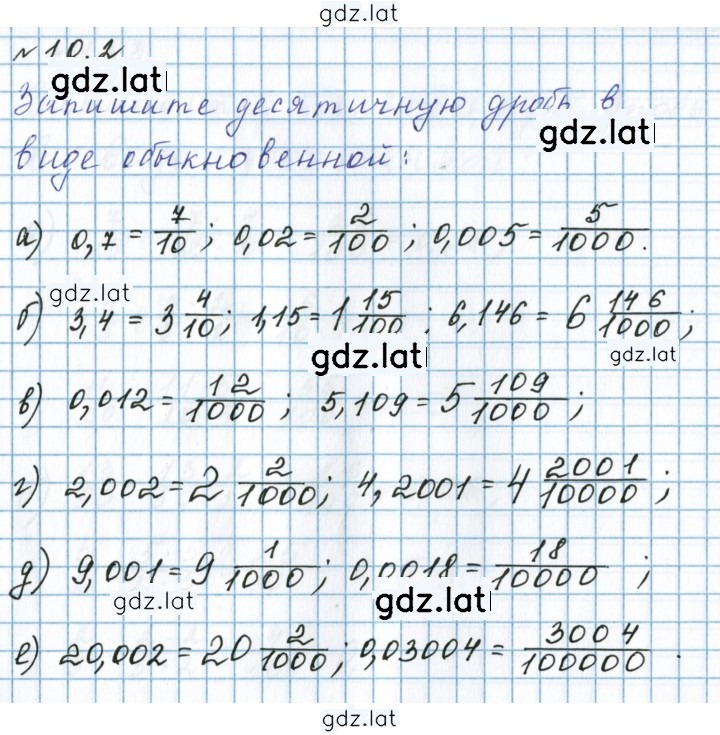 gdz.lat
№10.2
gdz.lat
Запишите десятичную дробь в
gdz.lat
виде обыкновенной:
а) 0,7 = 7/10; 0,02 = 2/100; 0,005 = 5/1000.
gdz.lat
б) 3,4 = 3 4/10; 1,15 = 1 15/100; 6,146 = 6 146/1000;
gdz.lat
gdz.lat
в) 0,012 = 12/1000; 5,109 = 5 109/1000;
г) 2,002 = 2 2/1000; 4,2001 = 4 2001/10000;
д) 9,001 = 9 1/1000; 0,0018 = 18/10000;
gdz.lat
gdz.lat
е) 20,002 = 20 2/1000; 0,03004 = 3004/100000.
gdz.lat